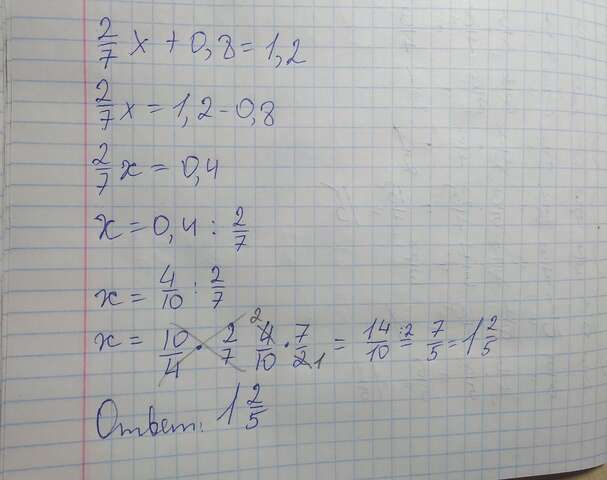 2/7 x + 0,8 = 1,2
2/7 x = 1,2 - 0,8
2/7 x = 0,4
x = 0,4 : 2/7
x = 4/10 : 2/7
x = 10/4 · 2/7 2 4/10 · 7/2 1 = 14/10 :2 = 7/5 = 1 2/5
Ответ: 1 2/5